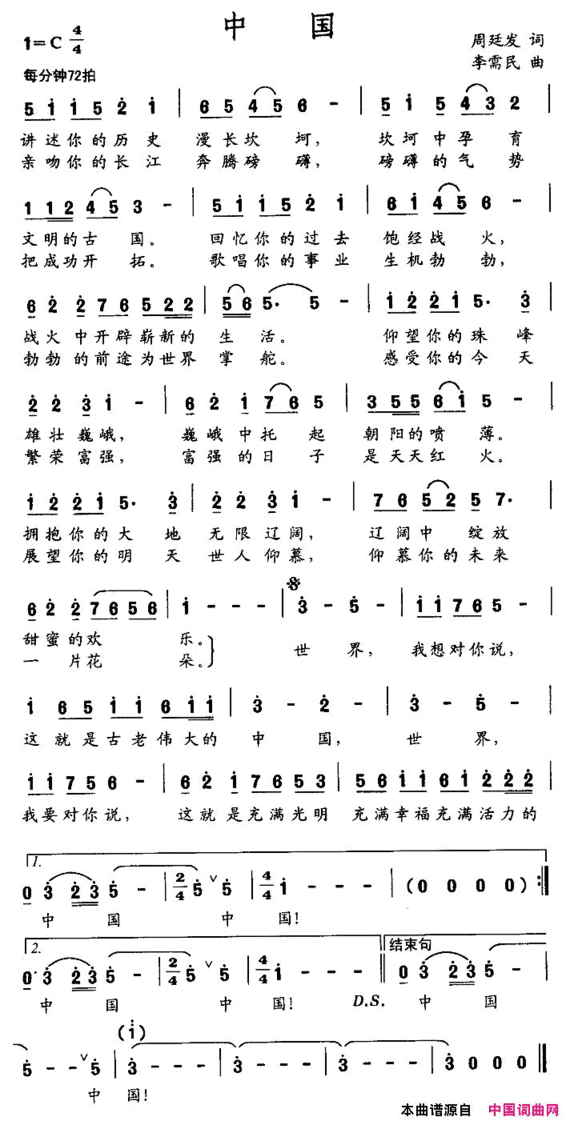 中 国
1=C 4/4
周廷发 词
李需民 曲
每分钟72拍
5 1 1 5 2 1 | 6 5 4 5 6 - | 5 1 5 4 3 2 |
讲述你的历史 漫长坎 坷, 坎坷中孕 育
亲吻你的长江 奔腾磅 礴, 磅礴的气 势
1 1 2 4 5 3 - | 5 1 1 5 2 1 | 6 1 4 5 6 - |
文明的古 国。 回忆你的过去 饱经战 火,
把成功开 拓。 歌唱你的事业 生机勃 勃,
6 2 2 7 6 5 2 2 | 5 6 5· 5 | 1 2 2 1 5· 3 |
战火中开辟崭新的 生 活。 仰望你的珠 峰
勃勃的前途为世界 掌 舵。 感受你的今 天
2 2 3 1 - | 6 2 1 7 6 5 | 3 5 5 6 1 5 - |
雄壮巍峨, 巍峨中托 起 朝阳的喷 薄。
繁荣富强, 富强的日 子 是天天红 火。
1 2 2 1 5· 3 | 2 2 3 1 - | 7 6 5 2 5 7· |
拥抱你的大 地 无限辽阔, 辽阔中 绽放
展望你的明 天 世人仰慕, 仰慕你的未来
6 2 2 7 6 5 6 | 1 - - - | 3 - 5 - | 1 1 7 6 5 - |
甜蜜的欢 乐。 世 界, 我想对你说,
一 片花 朵。
1 6 5 1 1 6 1 1 | 3 - 2 - | 3 - 5 - |
这 就是古老伟大的 中 国, 世 界,
1 1 7 5 6 - | 6 2 1 7 6 5 3 | 5 6 1 1 6 1 2 2 2 |
我要对你说, 这就 是充满光明 充满幸福充满活力的
1.
0 3 2 3 5 - | 2/4 5 ∨ 5 | 4/4 1 - - - | (0 0 0 0) :‖
中 国 中 国!
2. 结束句
0· 3 2 3 5 - | 2/4 5 ∨ 5 | 4/4 1 - - - ‖ 0 3 2 3 5 - |
中 国 中 国! D.S. 中 国
(1)
5 - - ∨ 5 | 3 - - - | 3 - - - | 3 - - - | 3 0 0 0 ‖
中 国!
本曲谱源自 中国词曲网